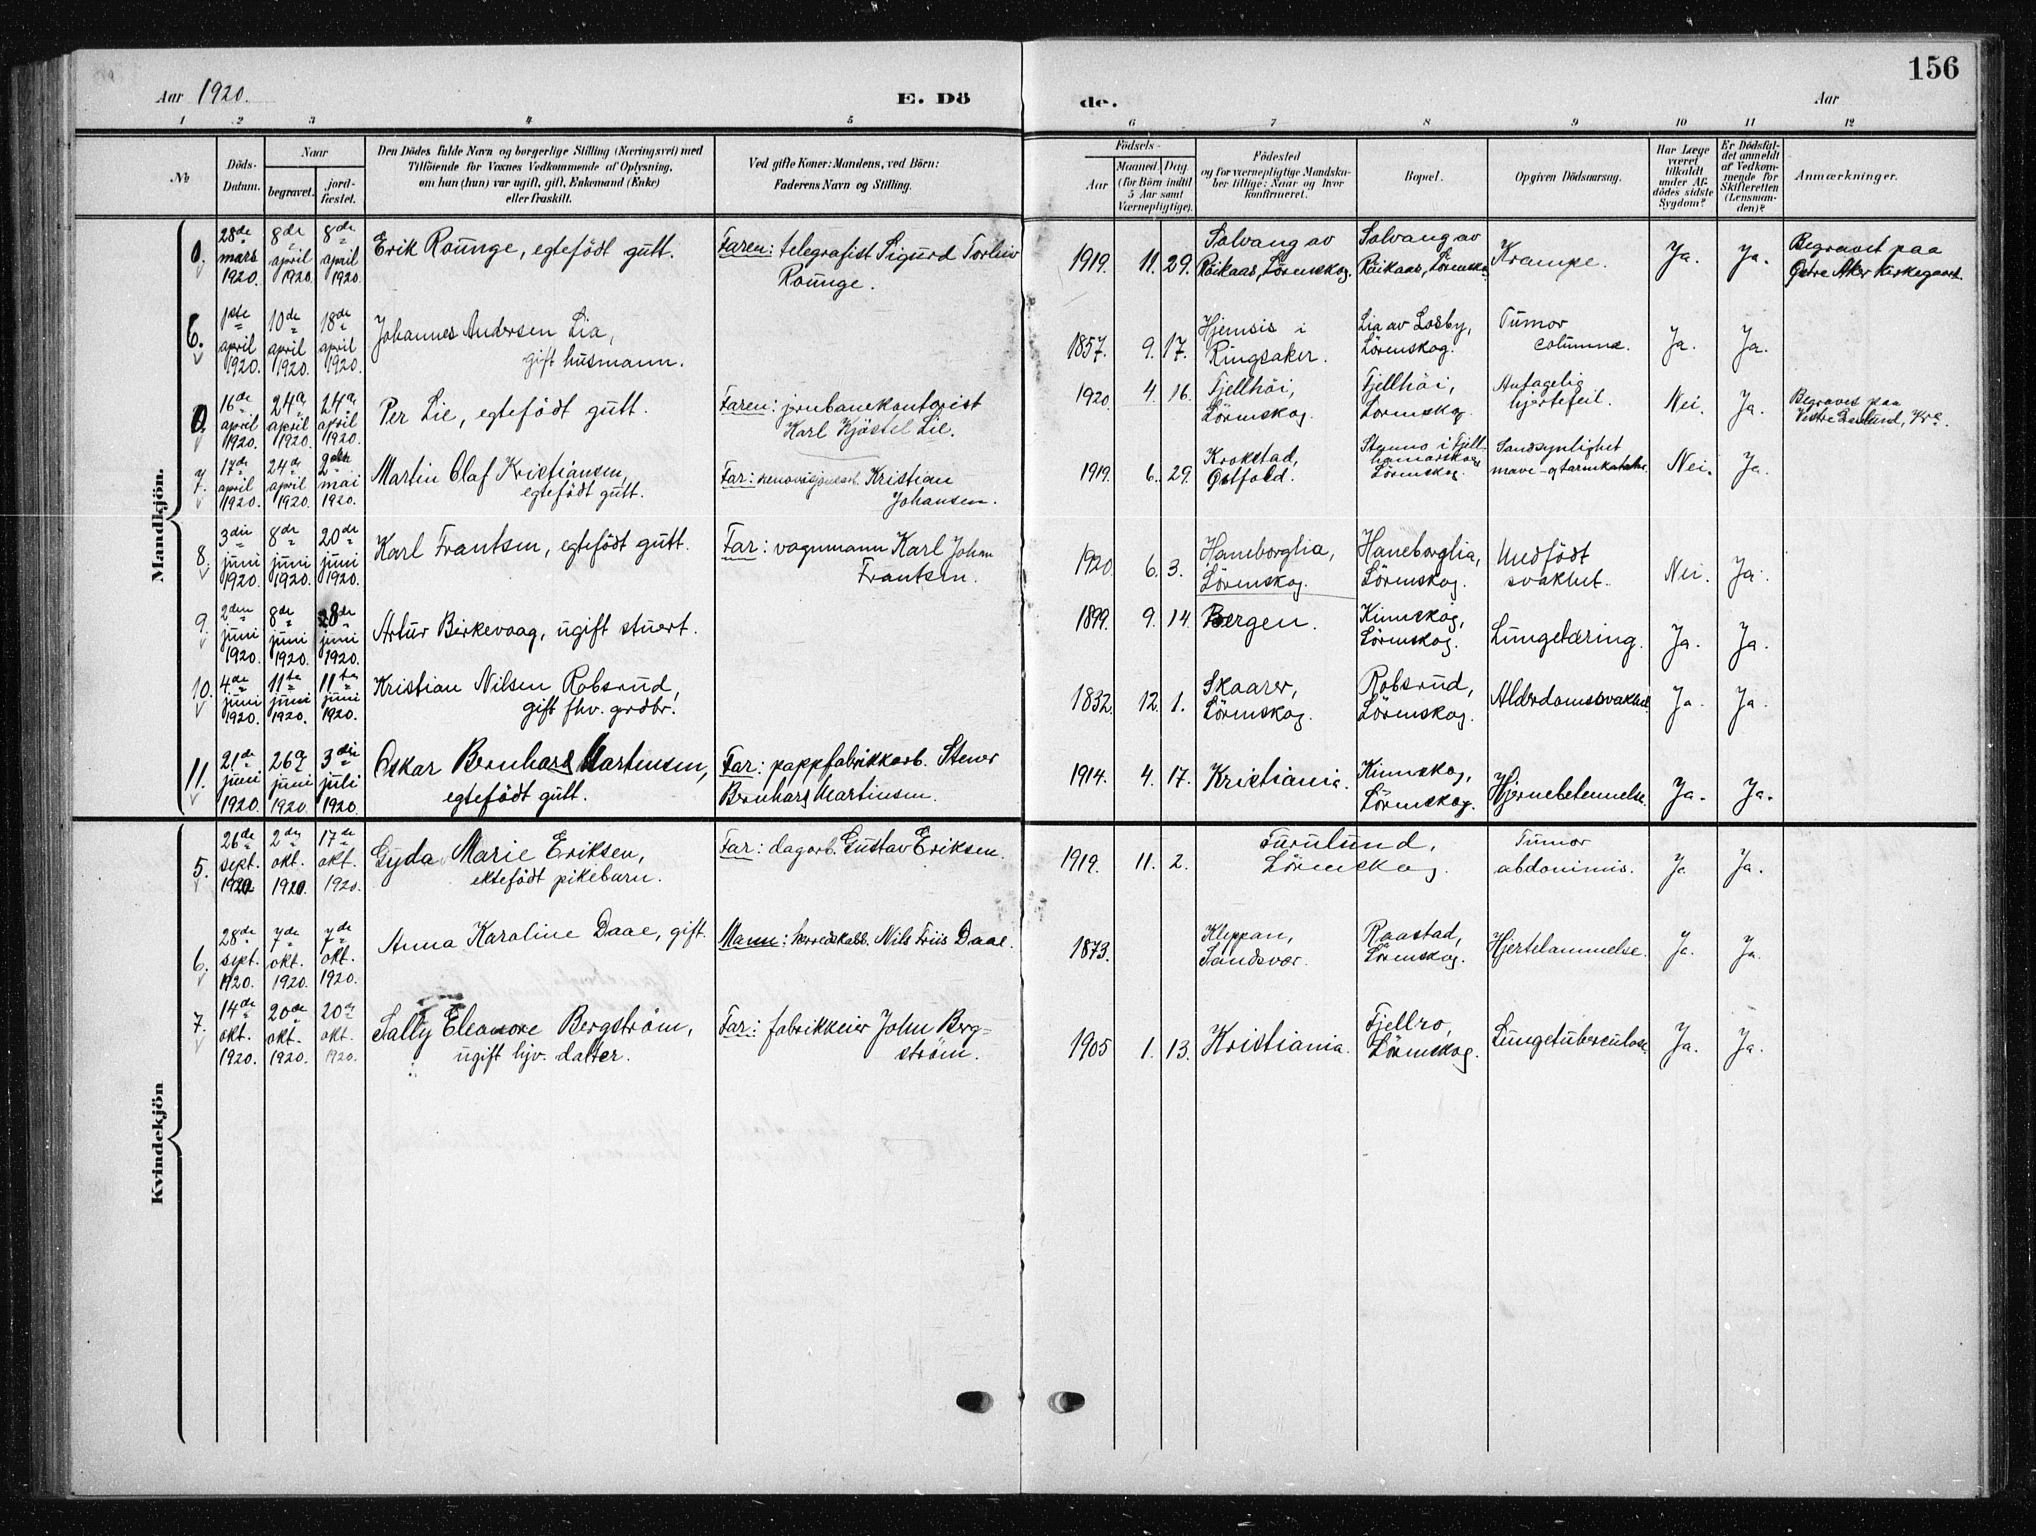 156
Aar 1920.
E. Dö
de.
Aar
1 2 3 4 5 6 7 8 9 10 11 12
No
Döds-
Datum.
Naar
begravet.
jord-
fæstet.
Den Dödes fulde Navn og borgerlige Stilling (Næringsvei) med
Tilföiende for Voxnes Vedkommende af Oplysning,
om hun (han) var ugift, gift, Enkemand (Enke)
eller fraskilt.
Ved gifte Koner: Mandens, ved Börn:
Faderens Navn og Stilling.
Födsels-
Aar
Maaned. Dag.
(for Börn indtil
5 Aar samt
Værnepligtige).
Födested
og for værnepligtige Mandska-
ber tillige: Naar og hvor
konfirmeret.
Bopæl.
Opgiven Dödsaarsag.
Har Læge
været
tilkaldt
under Af-
dödes sidste
Sygdom?
Er Dödsfal-
det anmeldt
af Vedkom-
mende for
Skifteretten
(Lensman-
den)?
Anmærkninger.
Mandkjön.
0. 28de mars 1920. 8de april 1920. 8de april 1920.
Erik Rounge, egtefödt gutt.
Faren: telegrafist Sigurd Torleiv
Rounge.
1919. 11. 29.
Solvang av
Röikaas, Lörenskog.
Solvang av
Röikaas, Lörensko
Krampe.
Ja. Ja.
Begravet paa
Östre Aker Kirkegaard.
6. 1ste april 1920. 10de april 1920. 18de april 1920.
Johannes Andersen Lia,
gift husmann.
1857. 9. 17.
Hjemsis i
Ringsaker.
Lia av Losby,
Lörenskog.
Tumor
columnæ.
Ja. Ja.
0. 16de april 1920. 24de april 1920. 24de april 1920.
Per Lie, egtefödt gutt.
Faren: jernbanekontorist
Karl Kjöstel Lie.
1920. 4. 16.
Fjellhöi,
Lörenskog.
Fjellhöi,
Lörenskog
Antagelig
hjertefeil.
Nei. Ja.
Begravet paa
Vestre Gravlund, Kra.
7. 17de april 1920. 24de april 1920. 2den mai 1920.
Martin Olaf Kristiansen,
egtefödt gutt.
Far: renovasjonsarb. Kristian
Johansen.
1919. 6. 29.
Krokstad,
Østfold.
i Fjell-
hamarskog
Lörenskog.
Sandsynlighet
mave- og tarmkatahr.
Nei. Ja.
8. 3die juni 1920. 8de juni 1920. 20de juni 1920.
Karl Frantsen, egtefödt gutt.
Far: vognmann Karl Johan
Frantsen.
1920. 6. 3.
Haneborglia,
Lörenskog.
Haneborglia,
Lörenskog.
Medfödt
svakhet.
Nei. Ja.
9. 2den juni 1920. 8de juni 1920. 8de juni 1920.
Artur Birkevaag, ugift stuert.
1899. 9. 14.
Bergen.
Kinnskog,
Lörenskog.
Lungetæring.
Ja. Ja.
10. 4de juni 1920. 11te juni 1920. 11te juni 1920.
Kristian Nilsen Robsrud,
gift fhv. grdbr.
1832. 12. 1.
Skaarer,
Lörenskog.
Robsrud,
Lörenskog.
Alderdomssvakhet.
Ja. Ja.
11. 21de juni 1920. 26de juni 1920. 3die juli 1920.
Oskar Bernhard Martinsen,
egtefödt gutt.
Far: pappfabrikkarb. Stener
Bernhard Martinsen.
1914. 4. 17.
Kristiania.
Kinnskog,
Lörenskog.
Hjernebetennelse.
Ja. Ja.
Kvindekjön
5. 26de sept. 1920 2den okt. 1920. 17de okt. 1920.
Gyda Marie Eriksen,
ektefödt pikebarn.
Far: dagarb. Gustav Eriksen.
1919. 11. 2.
Furulund,
Lörenskog.
Tumor
abdominis.
Ja Ja.
6. 28de sept. 1920. 7de okt. 1920. 7de okt. 1920.
Anna Karoline Daae, gift.
Mann: herredskass. Nils Friis Daae.
1873.
Kleppan,
Sandsvær.
Raastad,
Lörenskog.
Hjertelammelse.
Ja. Ja.
7. 14de okt. 1920. 20de okt. 1920. 20de okt. 1920.
Sally Eleanore Bergström,
ugift hjv. datter.
Far: fabrikkeier John Berg=
ström.
1905 1. 13.
Kristiania.
Fjellro,
Lörenskog.
Lungetuberculose.
Ja. Ja.